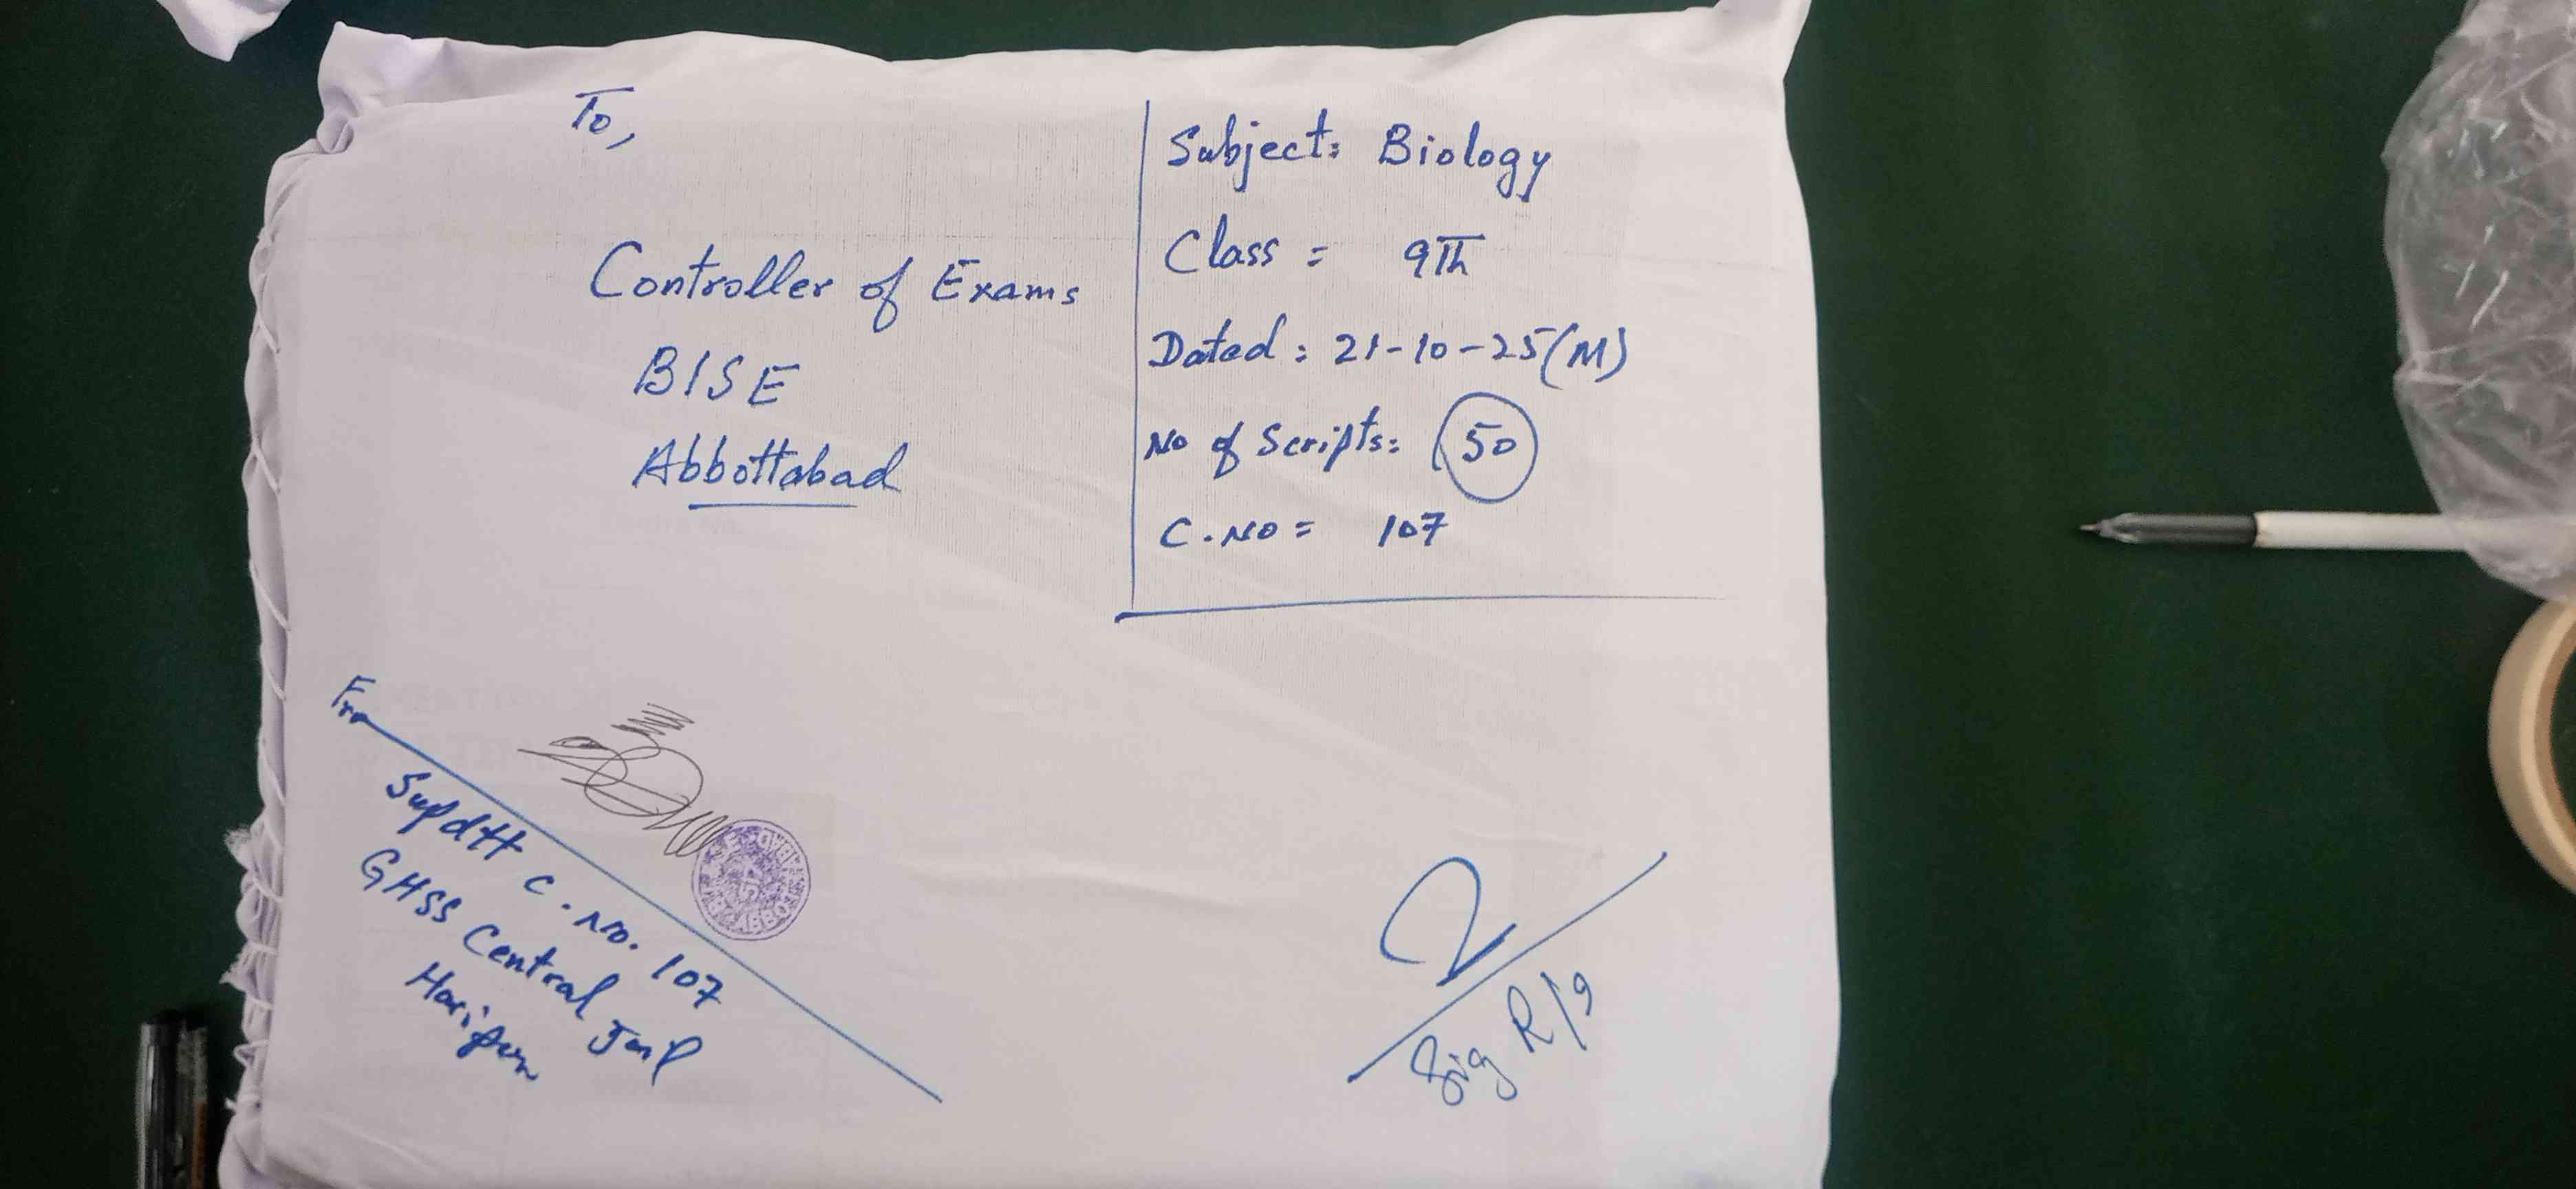 To,
Controller of Exams
BISE
Abbottabad
Subject: Biology
Class = 9Th
Dated: 21-10-25(M)
No of Scripts: 50
C.NO = 107
Fro
Supdtt C.No. 107
GHSS Central Jail
Haripur
Sig R/I